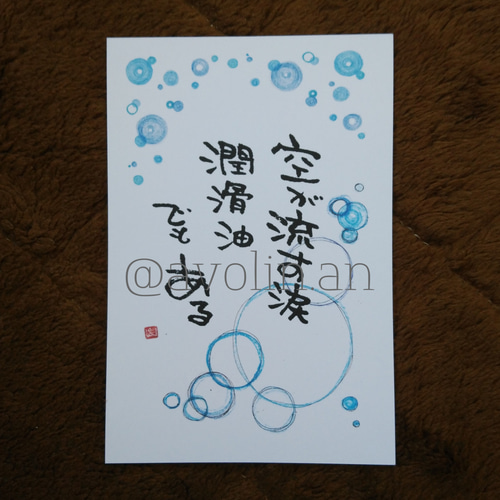 空が流す涙
潤滑油
でも
ある
@ayolinan